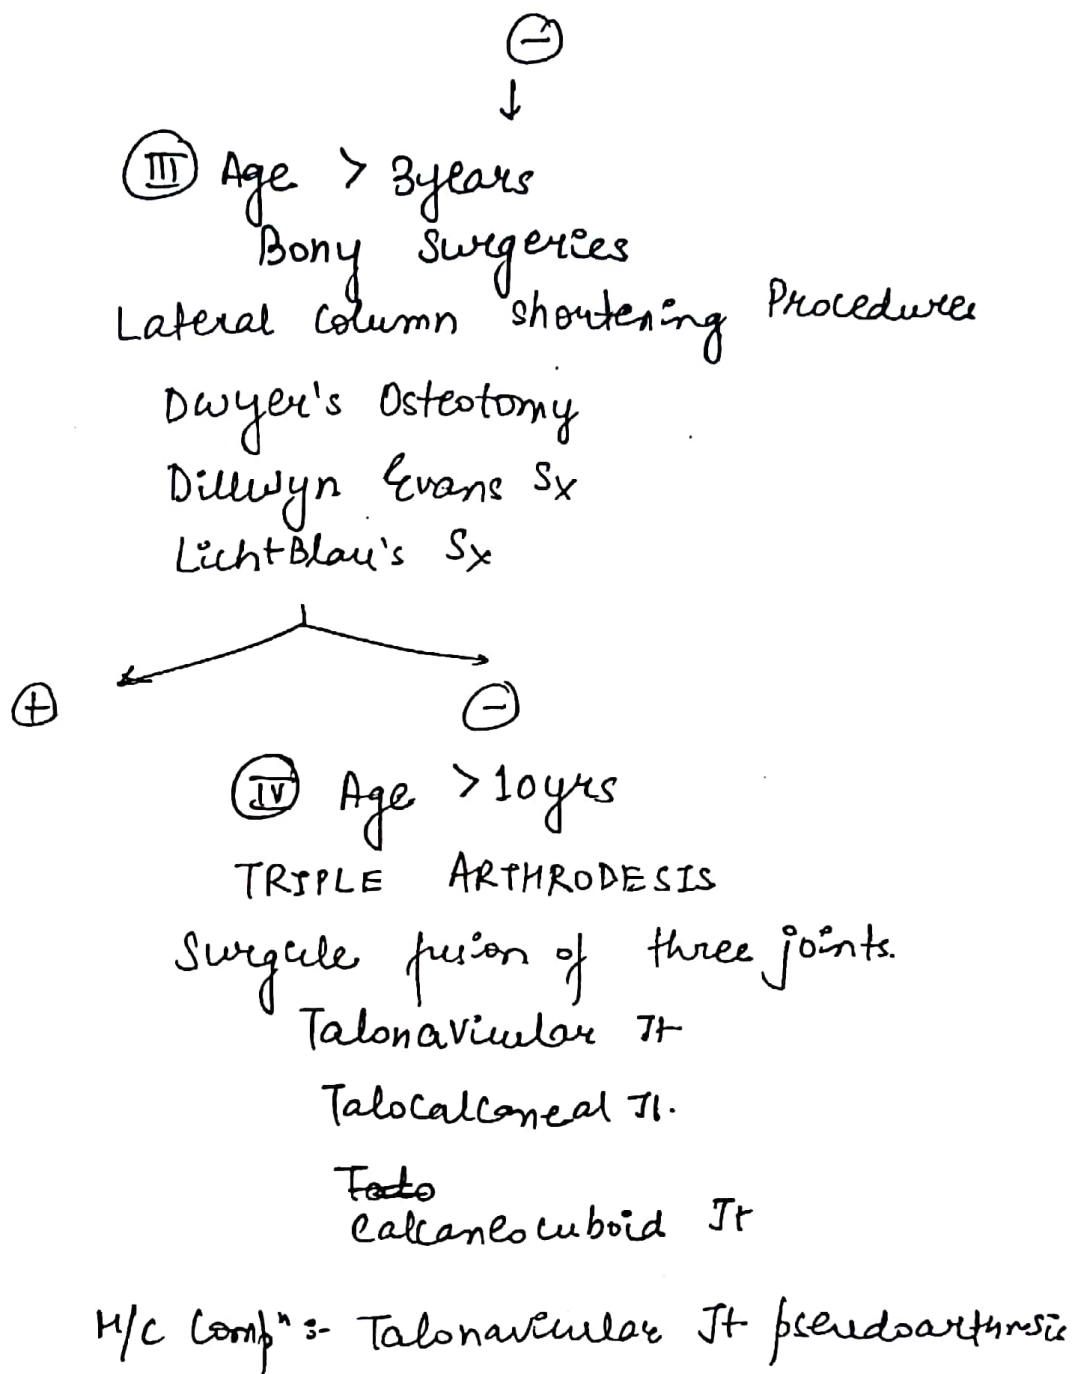 (-)
↓
(III) Age > 3years
Bony Surgeries
Lateral Column Shortening Procedures
Dwyer's Osteotomy
Dillwyn Evans Sx
LichtBlau's Sx
(+) (-)
(IV) Age >10yrs
TRIPLE ARTHRODESIS
Surgicle fusion of three joints.
Talonavicular Jt
Talocalcaneal Jt.
Calcaneocuboid Jt
M/C Compⁿ :- Talonavicular Jt pseudoarthrosis